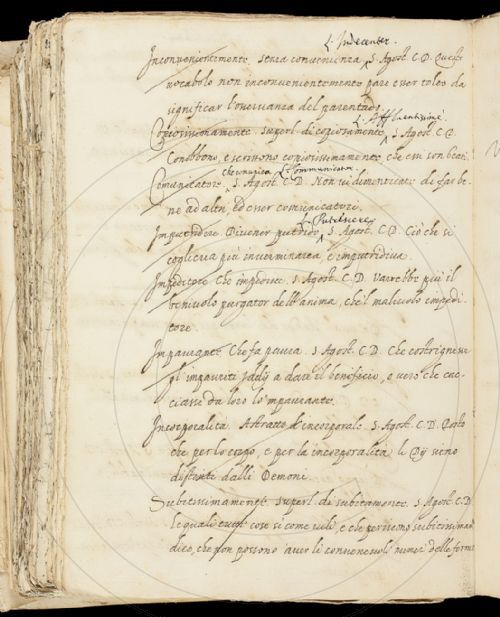 L. Indecenter.
Inconvenientemente. senza convenienza. S. Agost. C. D. Questo
vocabolo non inconvenientemente pare esser tolto da
significar l'osservanza del parentado.
L. Affluentissime.
Copiosissimamente. superl. di copiosamente. S. Agost. C. D.
Conobbono, e scrissono copiosissimamente, che essi son beati.
Che comunica. L. Communicator.
Comunicatore. S. Agost. C. D. Non vi dimenticate di far be-
ne ad altri, ed esser comunicatori.
L. Putrescere
Imputridire. Divenir putrido. S. Agost. C. D. Ciò che si
coglieva più inverminava, e imputridiva.
Impeditore. Che impedisce. S. Agost. C. D. Varrebbe più il
benivolo purgator dell'anima, che'l malivolo impedi-
tore
Impaurante. Che fa paura. S. Agost. C. D. Che costrignesse
gl'impauriti Iddij a dare il beneficio, o vero che cac-
ciasse da loro lo'mpaurante.
Incorporalità. Astratto d'incorporale. S. Agost. C. D. Posto
che per lo luogo, e per la incorporalità li Dij sieno
distanti dalli Demoni
Subitissimamente. superl. di subitamente. S. Agost. C. D.
le quali tutte cose si come vili, e che periscono subitissimam
dice, che non possono aver li convenevoli numeri delle forme